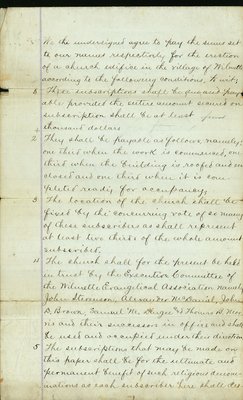 We the undersigned agree to pay the sums set
to our names respectively for the erection
of a church edifice in the village of Wilmette
according to the following conditions, To wit;
These subscriptions shall be due and pay-
able provided the entire amount secured on
subscription shall be at least four
thousand dollars
2 They shall be payable as follows namely;
one third when the work is commenced, one
third when the building is roofed and en
closed and one third when it is com-
pleted ready for occupancy;
3 The location of the church shall be
fixed by the concurring vote of so many
of these subscribers as shall represent
at least two thirds of the whole amount
subscribed;
4 The church shall for the present be held
in trust by the Executive Committee of
the Wilmette Evangelical Association namely
John Stevenson, Alexander McDaniel, John
D. Brown, Samuel M. Dingee &
and their successors in office and shall
be used and occupied under their direction
5 The subscriptions that may be made on
this paper shall be for the ultimate and
permanent benefit of such religious denomi-
nations as each subscriber here shall des